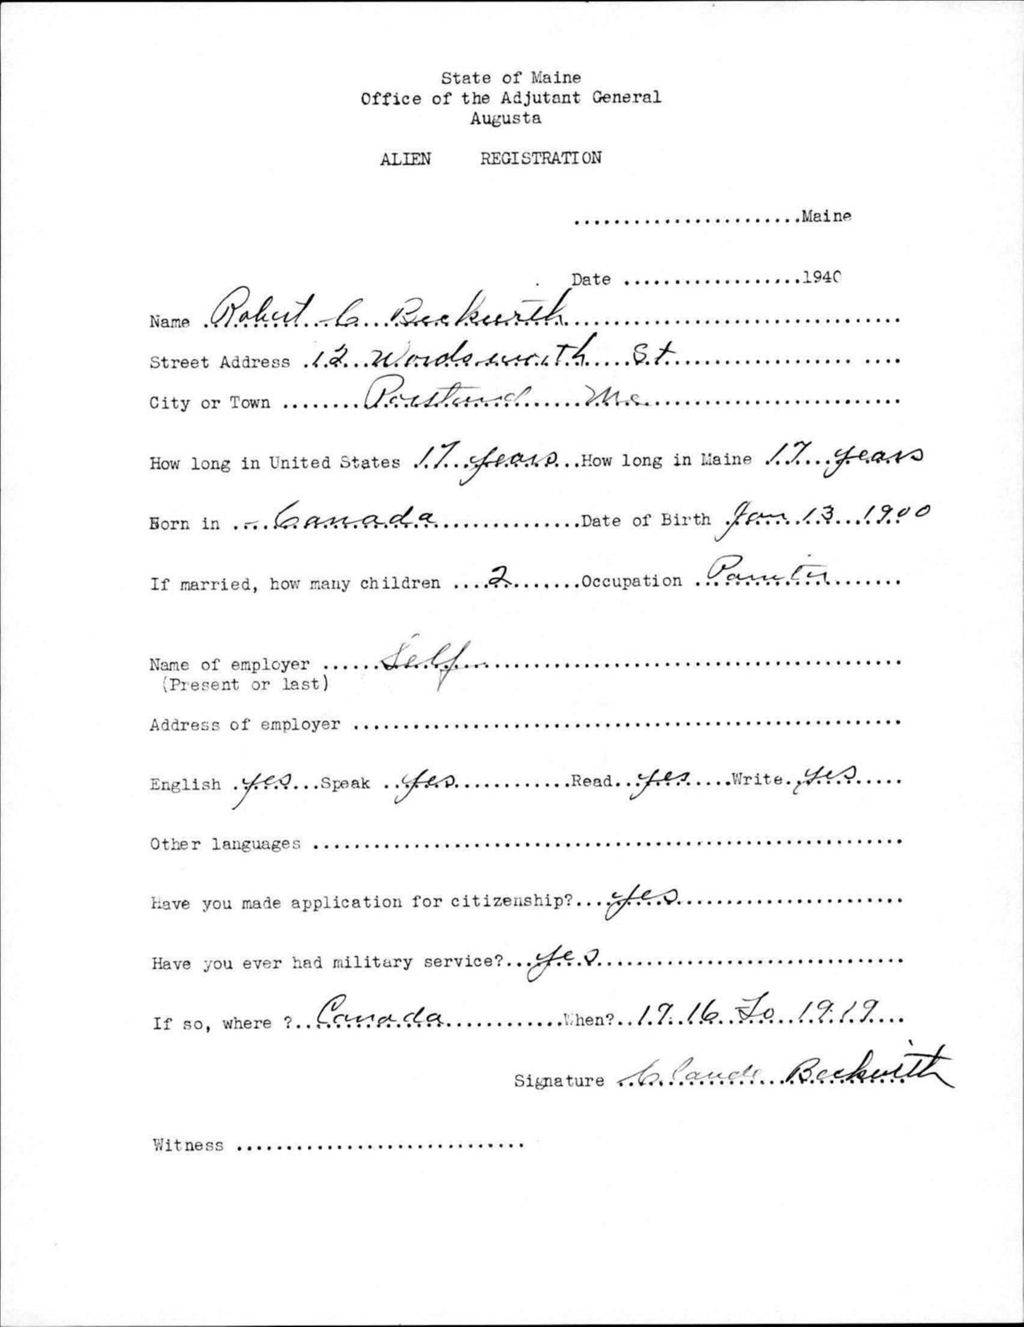 State of Maine
Office of the Adjutant General
Augusta
ALIEN REGISTRATION
.......................Maine
Date ..................1940
Name Robert C. Beckwith
Street Address 12 Wordsworth St.
City or Town Portland Me.
How long in United States 17 years How long in Maine 17 years
Born in Canada Date of Birth Jan 13 1900
If married, how many children 2 Occupation Painter
Name of employer Self
(Present or last)
Address of employer ........................................................
English yes Speak yes Read yes Write yes
Other languages ............................................................
Have you made application for citizenship? yes
Have you ever had military service? yes
If so, where ? Canada When? 1916 To 1919
Signature Claude Beckwith
Witness .............................